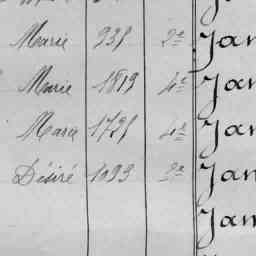 Marie 935 2e Jan
Marie 1819 4e Jan
Marie 1725 4e Jan
Désiré 1093 2e Jan
Jan